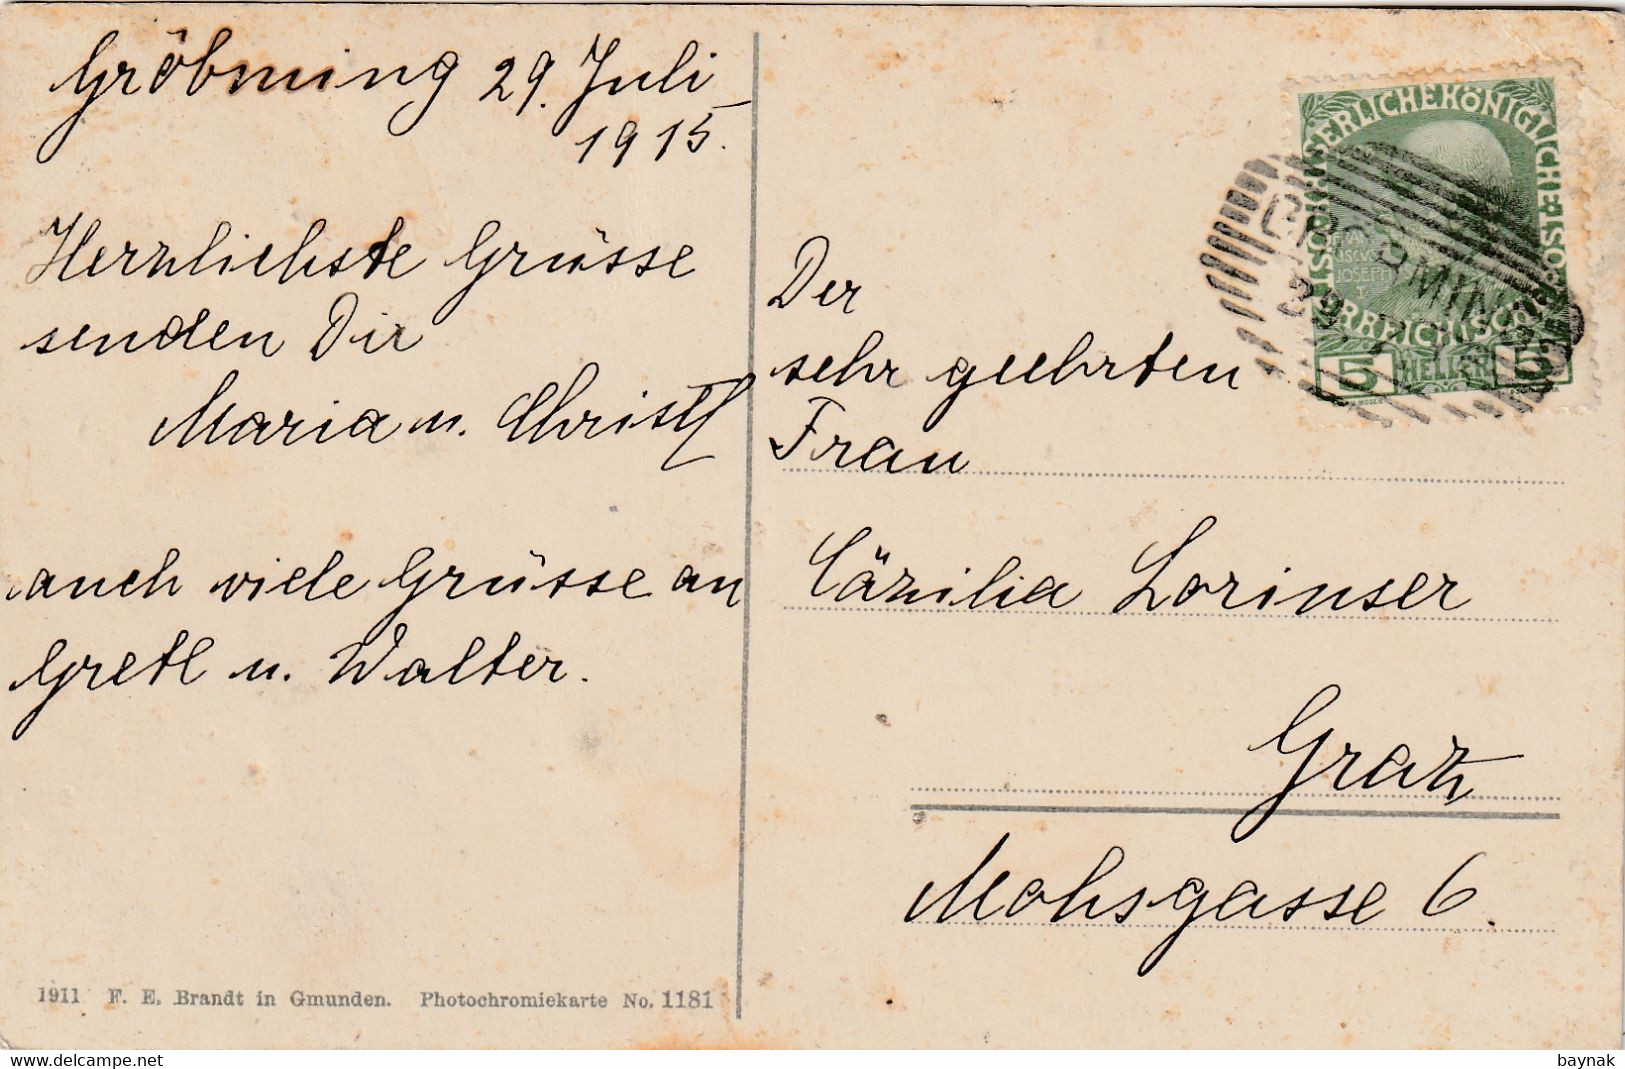 Gröbming 29. Juli
1915.
Herzlichste Grüsse
senden Dir
Maria u. Christl
auch viele Grüsse an
Gretl u. Walter.
1911 F. E. Brandt in Gmunden. Photochromiekarte No. 1181
KAISERLICHE KÖNIGLICHE
ÖSTERREICHISCHE
5 HELLER 5
GRÖBMING
Der
sehr geehrten
Frau
Cäzilia Lorinser
Graz
Mohsgasse 6.
delcampe.net
baynak